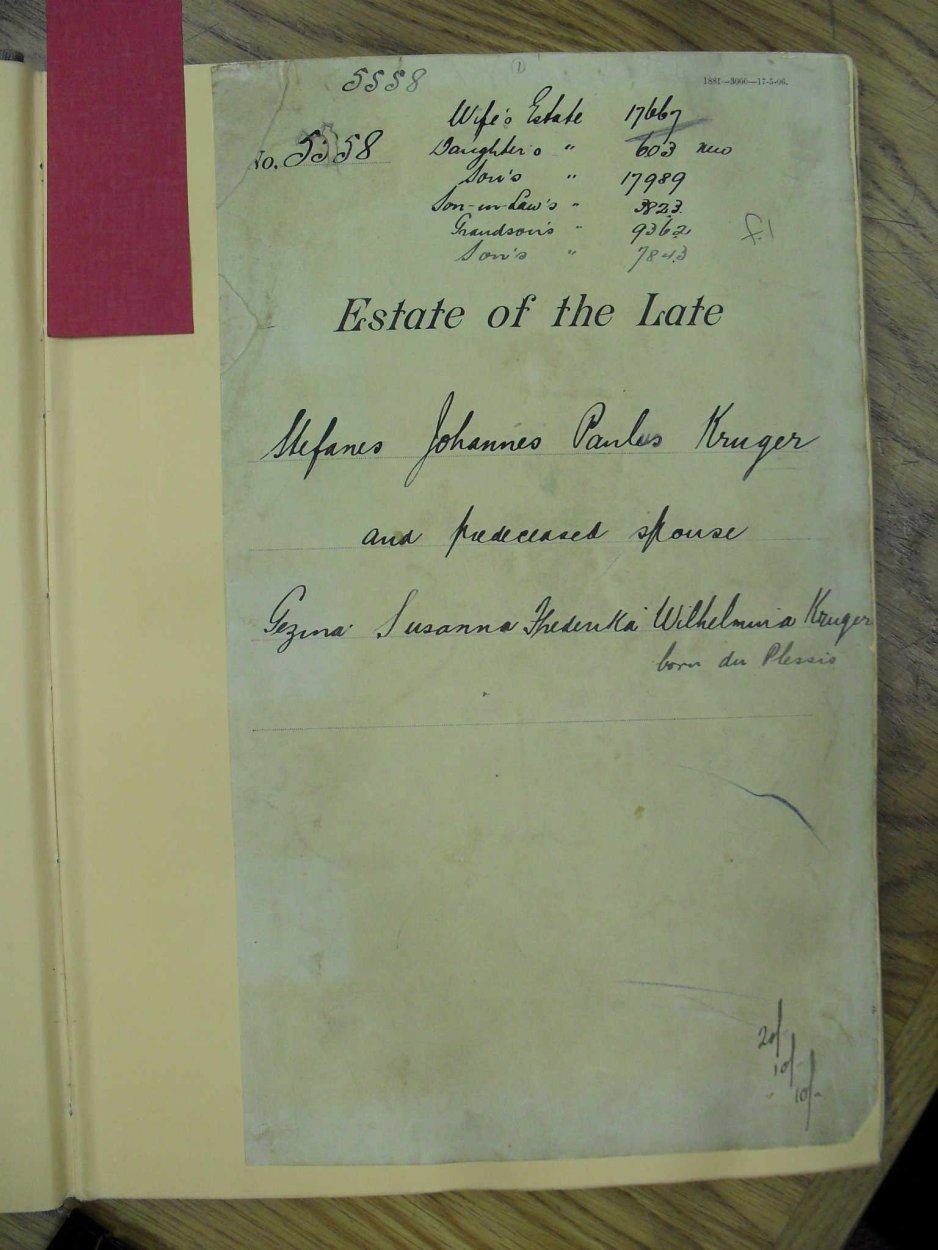 5558
1
1881—3000—17-5-06.
Wife's Estate 17667
No. 5558
Daughter's " 603 new
Son's " 17989
Son-in-Law's " 3823
Grandson's " 9362
Son's " 7843
£1
Estate of the Late
Stefanes Johannes Paulus Kruger
and predeceased spouse
Gezina Susanna Frederika Wilhelmina Kruger
born du Plessis
20/
10/
10/-